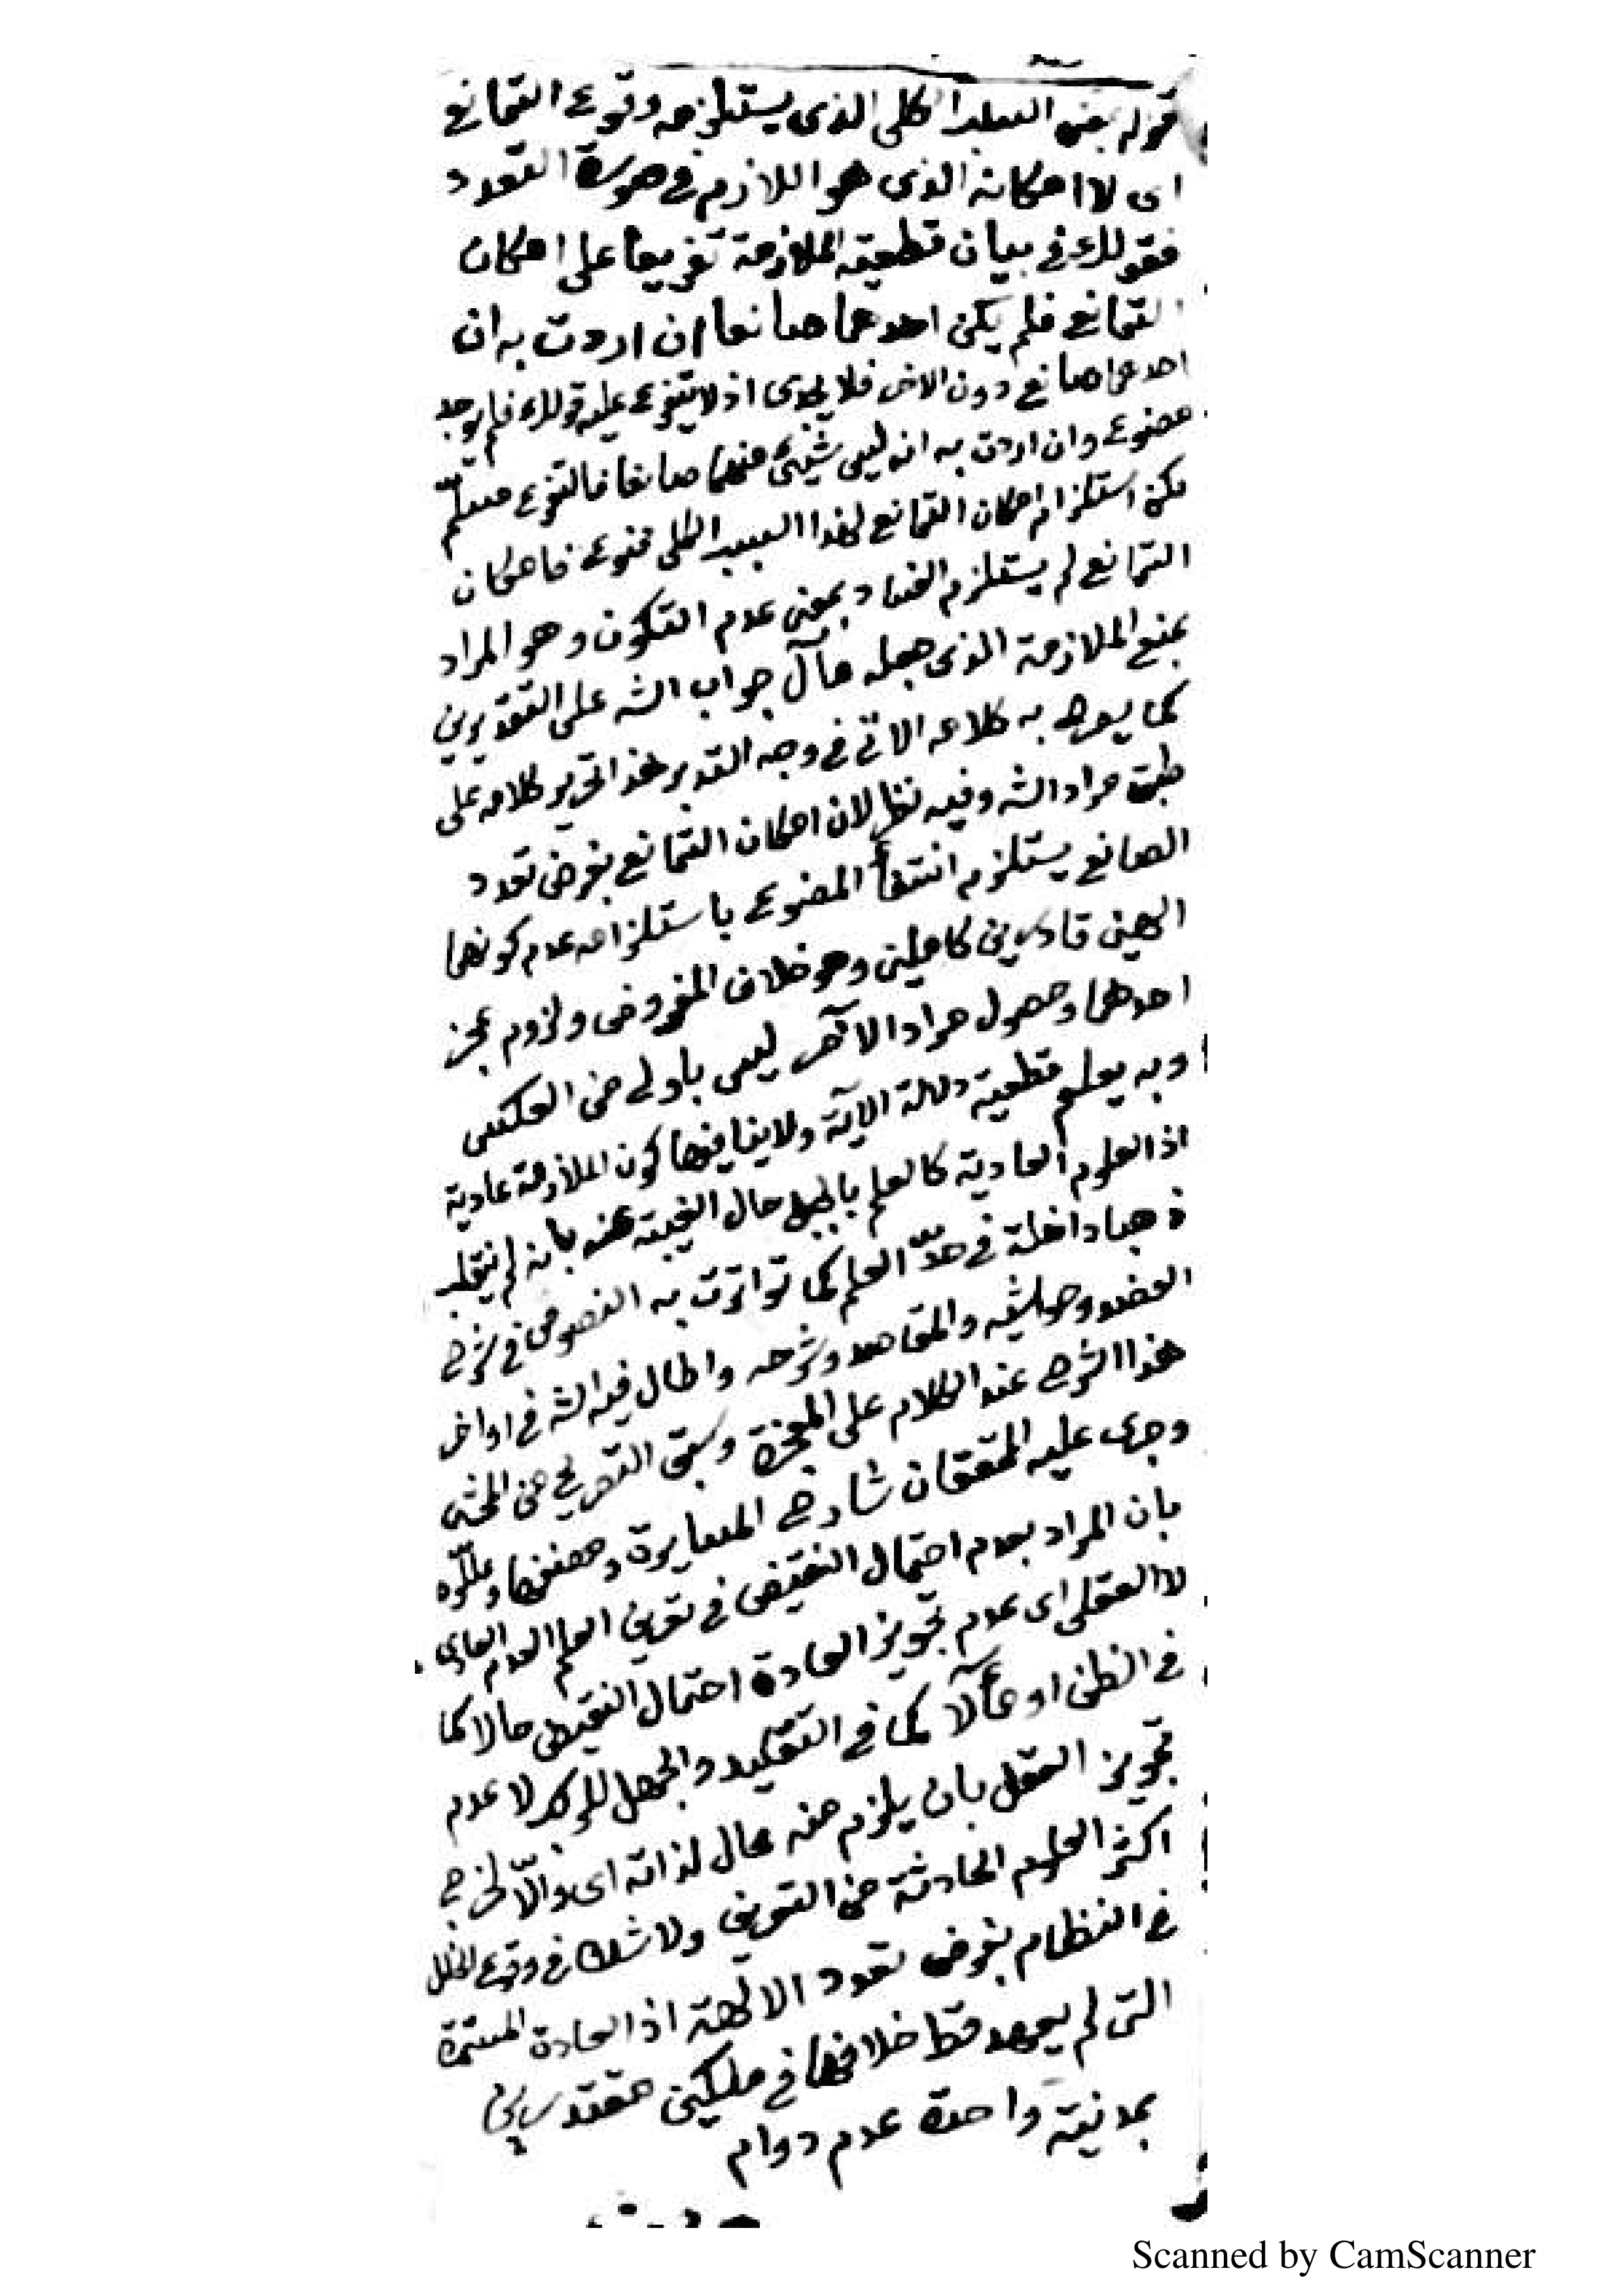 قوله بمعنى السلب الكلي الذي يستلزمه وقوع التمانع
اي لا امكانه الذي هو اللازم في صورة التعدد
فقولك في بيان قطعية الملازمة تفريعا على امكان
التمانع فلم يكن احدهما صانعا ان اردت به ان
احدهما صانع دون الاخر فلا يجدي اذ لا يتفرع عليه قولك فلم يوجد
مصنوع وان اردت به انه ليس شيئ منهما صانعا فالتفرع مسلم
لكن استلزام امكان التمانع لهذا السلب الكلي ممنوع فامكان
التمانع لم يستلزم الفساد بمعنى عدم التكون وهو المراد
بمنع الملازمة الذي جعله مآل جواب الشه على التقديرين
كما يصرح به كلامه الاتي في وجه التدبر هذا تحرير كلامه على
طبق مراد الشه وفيه نظر لان امكان التمانع بفرض تعدد
الصانع يستلزم انتفأ المصنوع باستلزامه عدم كونهما
الهين قادرين كاملين وهو خلاف المفروض ولزوم عجز
احدهما وحصول مراد الآخر ليس باولى من العكس
وبه يعلم قطعية دلالة الآية ولا ينافيها كون الملازمة عادية
اذ العلوم العادية كالعلم بالجبل حال الغيبة عنه بانه لم ينقلب
ذهبا داخلة في حدّ العلم كما تواترت به النصوص في شرح
العضد وحواشيه والمقاصد وشرحه واطال فيه الشه في اواخر
هذا الشرح عند الكلام على المعجزة وسبق التصريح من المحشى
وجرى عليه المحققان شارح المسايرة ومصنفها وعللوه
بان المراد بعدم احتمال النقيض في تعريف العلم العدم العادي
لا العقلي اي عدم تجويز العادة احتمال النقيض حالا كما
في الظن او مآلا كما في التقليد والجهل المركب لا عدم
تجويز العقل بان يلزم منه محال لذاته اي والّا لخرج
اكثر العلوم الحادثة من التعريف ولا شك في وقوع الخلل
في النظام بفرض تعدد الالهة اذ العادة المستمرة
التي لم يعهد قط خلافها في ملكين مقتدرين
بمدينة واحدة عدم دوام
Scanned by CamScanner